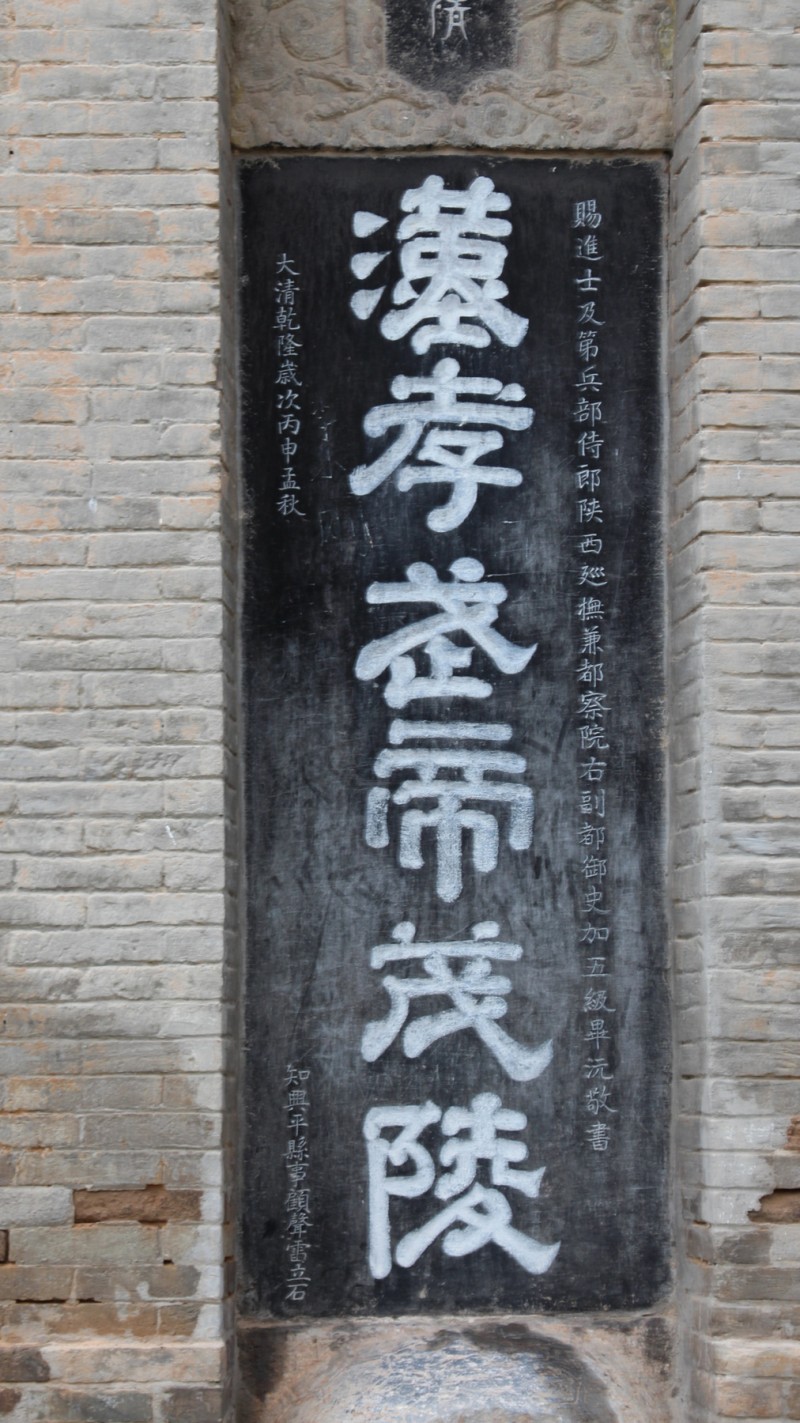 賜進士及第兵部侍郎陝西廵撫兼都察院右副都御史加五級畢沅敬書
漢孝武帝茂陵
大清乾隆歲次丙申孟秋
知興平縣事顧聲雷立石